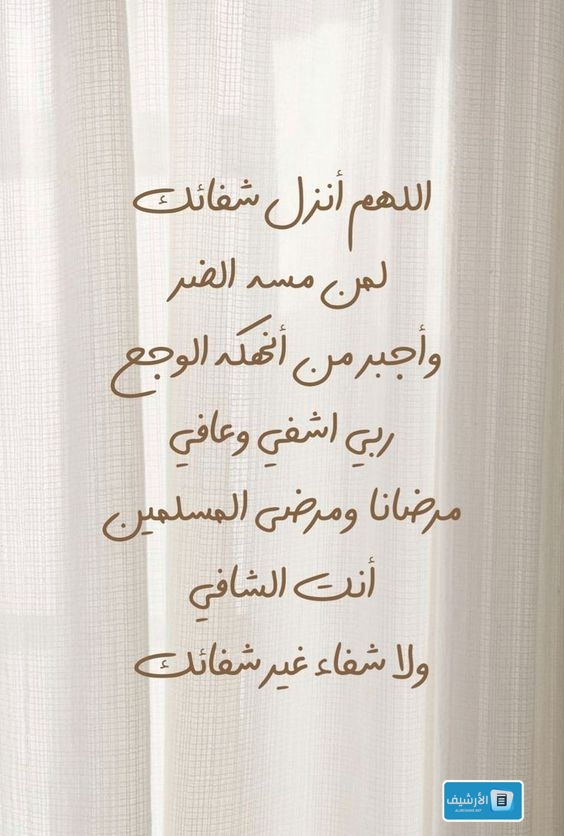 اللهم أنزل شفائك
لمن مسه الضر
وأجبر من أنهكه الوجع
ربي اشفي وعافي
مرضانا ومرضى المسلمين
أنت الشافي
ولا شفاء غير شفائك
الأرشيف